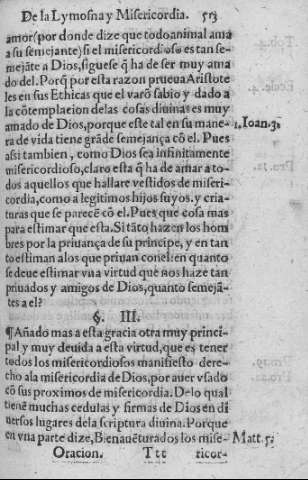 De la Lymosna y Misericordia. 513
amor (por donde dize que todo animal ama
a su semejante) si el misericordioso es tan se-
mejāte a Dios, siguese q̄ ha de ser muy ama
do del. Porq̄ por esta razon prueua Aristote
les en sus Ethicas que el varō sabio y dado a
la cōtemplacion delas cosas diuinas es muy
amado de Dios, porque este tal en su mane-
ra de vida tiene grāde semejança cō el. Pues 1. Ioan. 3.
assi tambien, como Dios sea infinitamente
misericordioso, claro esta q̄ ha de amar a to-
dos aquellos que hallare vestidos de miseri-
cordia, como a legitimos hijos suyos. y cria-
turas que se parecē cō el. Pues que cosa mas
para estimar que esta. Si tāto hazen los hom
bres por la priuança de su principe, y en tan
to estiman alos que priuan conel: en quanto
se deue estimar vna virtud que nos haze tan
priuados y amigos de Dios, quanto semejā-
tes a el?
§. III.
¶Añado mas a esta gracia otra muy princi-
pal y muy deuida a esta virtud, que es tener
todos los misericordiosos manifiesto dere-
cho ala misericordia de Dios, por auer vsado
cō sus proximos de misericordia. De lo qual
tienē muchas cedulas y firmas de Dios en di
uersos lugares dela scriptura diuina. Porque
en vna parte dize, Bienauēturados los mise- Matt. 5.
Oracion. Ttt ricor-